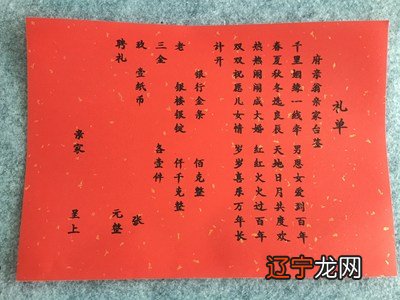 礼单
府亲翁亲家台鉴
千里姻缘一线牵 男恩女爱到百年
春夏秋冬选良辰 天地日月共庆欢
热热闹闹成大婚 红红火火过百年
双双祝愿儿女情 岁岁喜乐万年长
计开
银行金条 佰克整
老 银楼银锭 仟千克整
三金 各壹件
玫 壹纸币 张
聘礼 元整
亲家 呈上
辽宁龙网